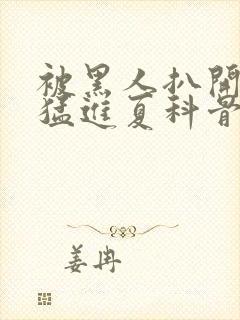 被黑人扒開
猛進夏科骨
姜冉